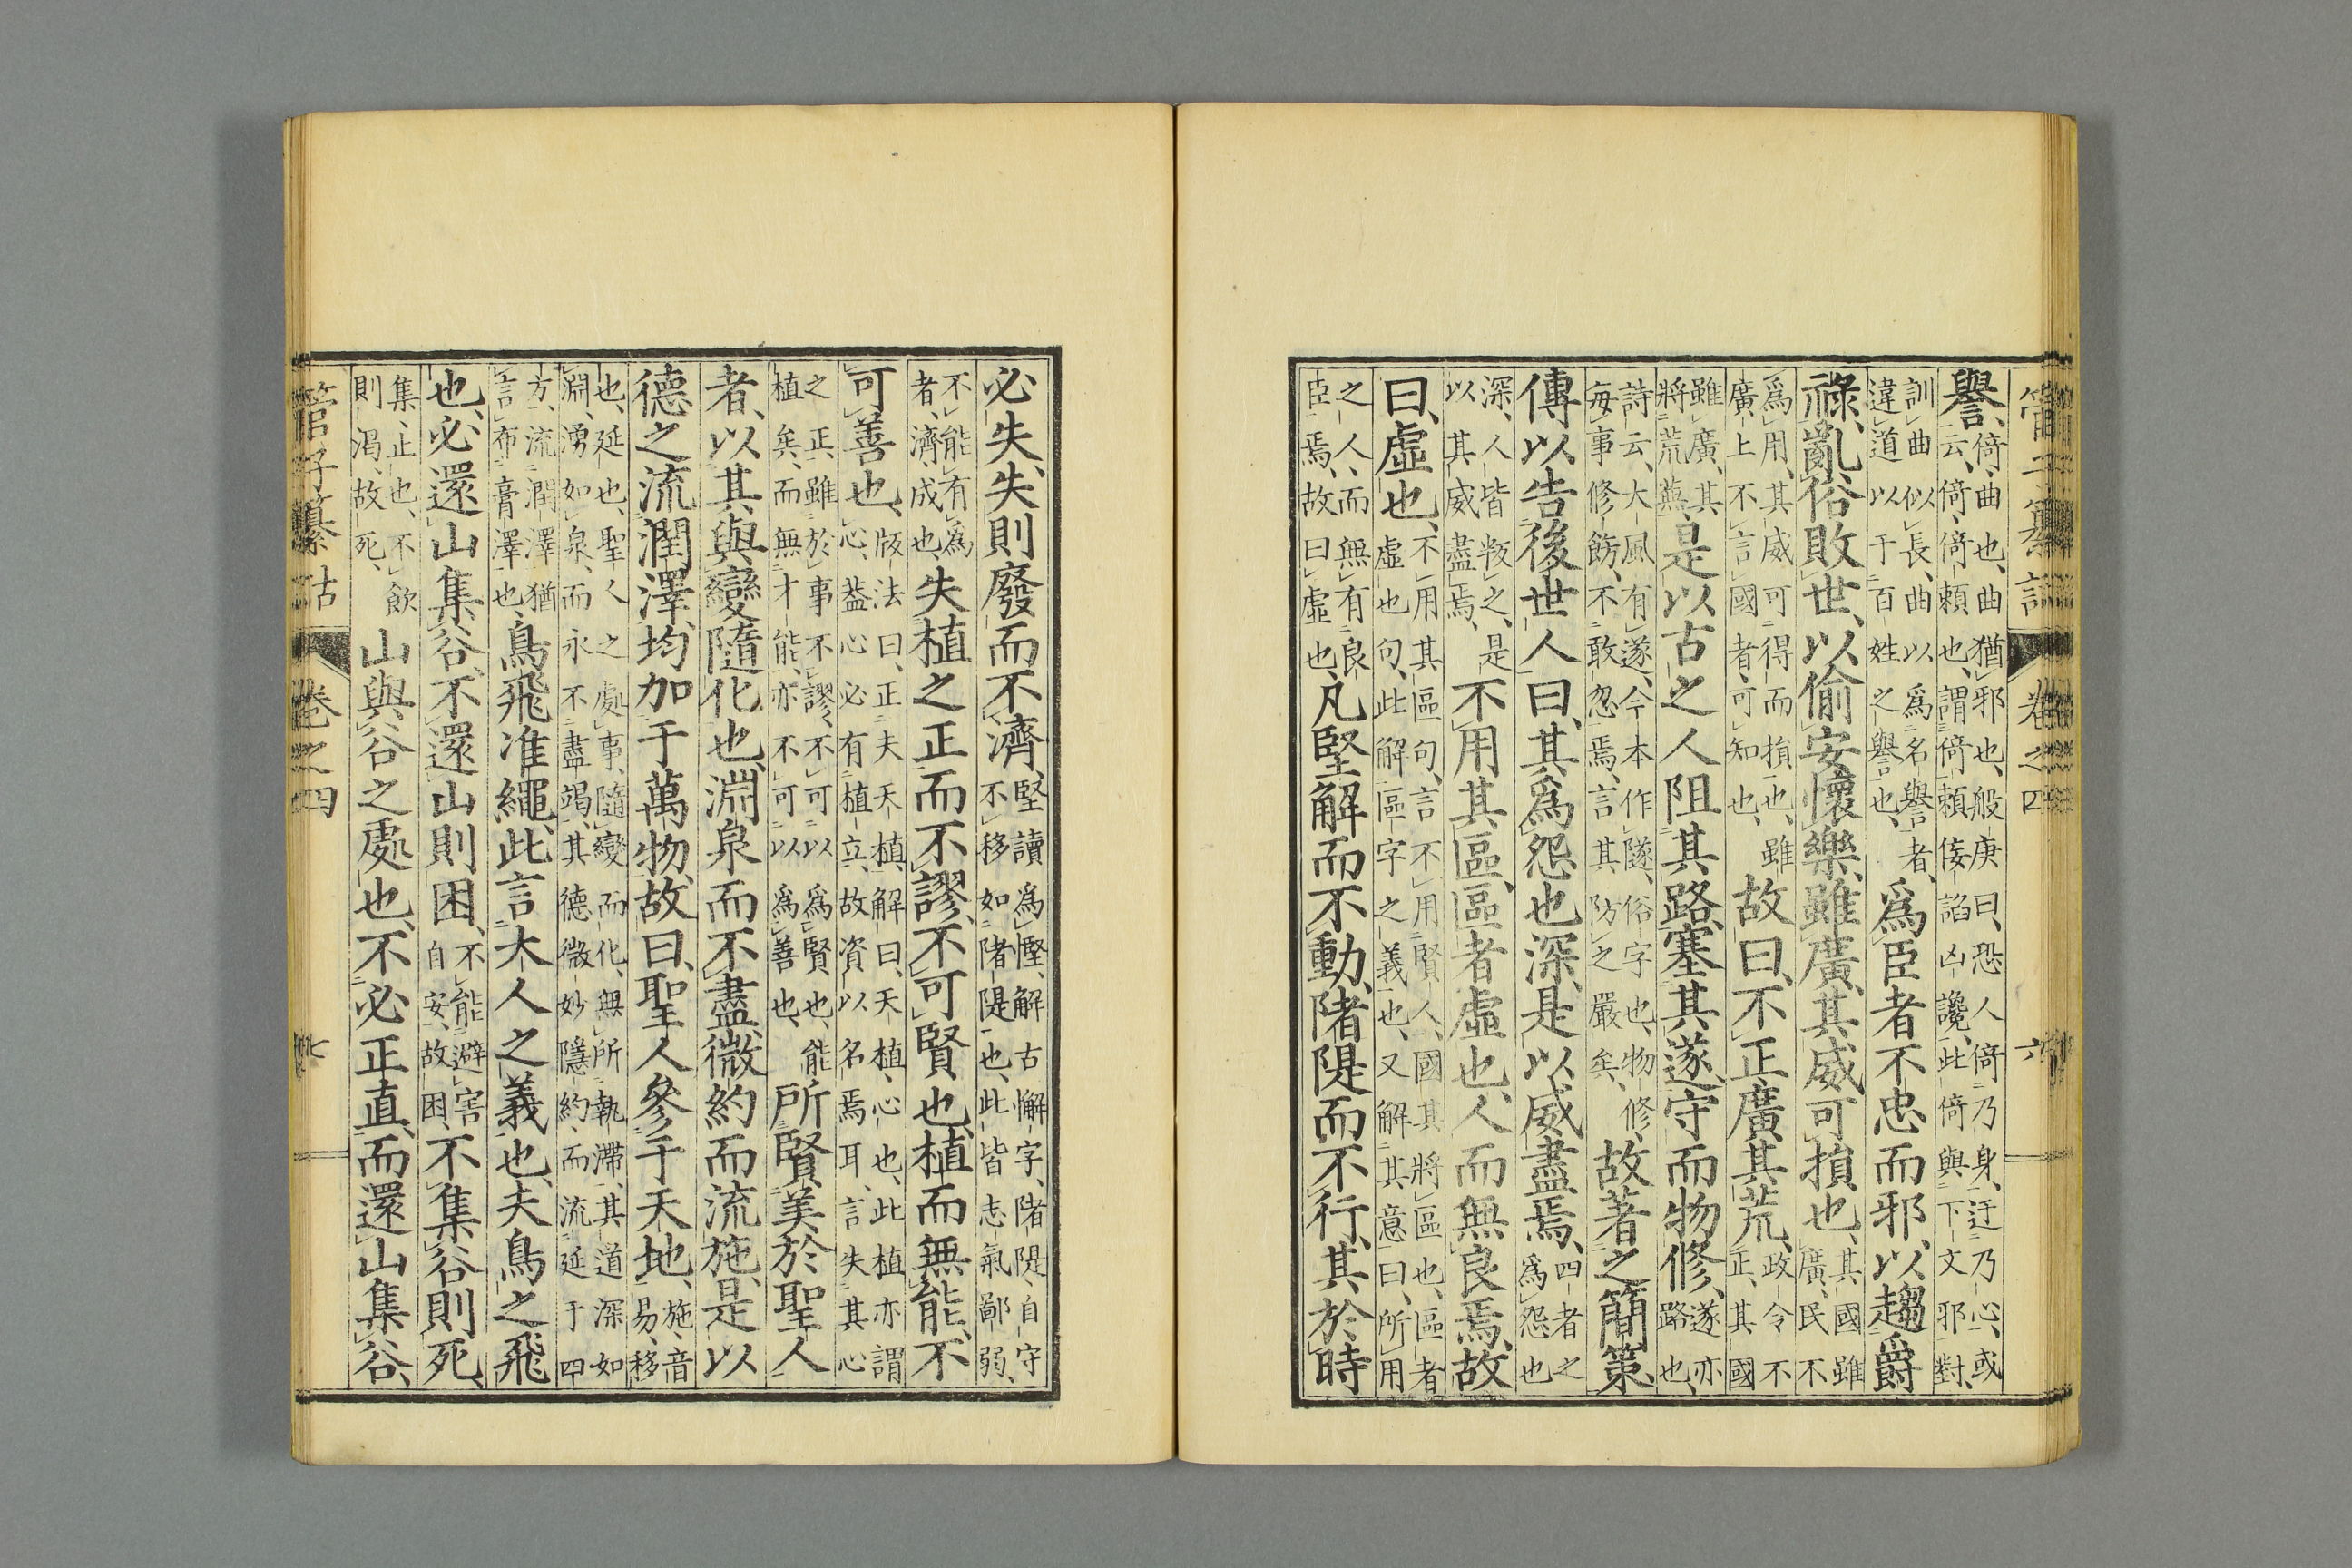 管子纂詁 卷之四 六
譽、倚、曲也、曲猶邪也、般庚曰、恐人倚乃身、迂乃心、或
云、倚、倚頼也、謂倚頼倭諂凶讒、此倚與下文邪對、
訓曲似長、曲以爲名譽者、
違道以干百姓之譽也、爲臣者不忠而邪、以趨爵
祿、亂俗敗世、以偷安懷樂、雖廣、其威可損也、其國雖
廣、民不
爲用、其威可得而損也、雖
廣、上不言國者、可知也、故曰、不正廣其荒、政令不
正、其國
雖廣、其
將荒蕪、是以古之人阻其路、塞其遂、守而物修、遂亦
路也、
詩云、大風有遂、今本作隧、俗字也、物修、
毎事修飭、不敢忽焉、言其防之嚴矣、故著之簡策、
傳以告後世人曰、其爲怨也深、是以威盡焉、四者之
爲怨也
深、人皆叛之、是
以其威盡焉、不用其區、區者虛也、人而無良焉、故
曰、虛也、不用其區句、言不用賢人、國其將區也、區者
虛也句、此解區字之義也、又解其意曰、所用
之人、而無有良
臣焉、故曰虛也、凡堅解而不動、陼隄而不行、其於時
必失、失則廢而不濟、堅讀爲慳、解古懈字、陼隄、自守
不移如陼隄也、此皆志氣鄙弱、
不能有爲
者、濟、成也、失植之正而不謬、不可賢也、植而無能、不
可善也、版法曰、正夫天植、解曰、天植、心也、此植亦謂
心、葢心必有植立、故資以名焉耳、言失其心
之正、雖於事不謬、不可以爲賢也、能
植矣、而無才能、亦不可以爲善也、所賢美於聖人
者、以其與變隨化也、淵泉而不盡、微約而流施、是以
德之流潤澤、均加于萬物、故曰、聖人參于天地、施、音
易、移
也、延也、聖人之處事、隨變而化、無所執滯、其道深如
淵、湧如泉、而永不盡竭、其德微妙隱約、而流延于四
方、流潤澤猶
言布膏澤也、鳥飛准繩、此言大人之義也、夫鳥之飛
也、必還山集谷、不還山則困、不能避害
自安、故困、不集谷則死、
集、止也、不飲
則渴、故死、山與谷之處也、不必正直、而還山集谷、
管子纂詁 卷之四 七